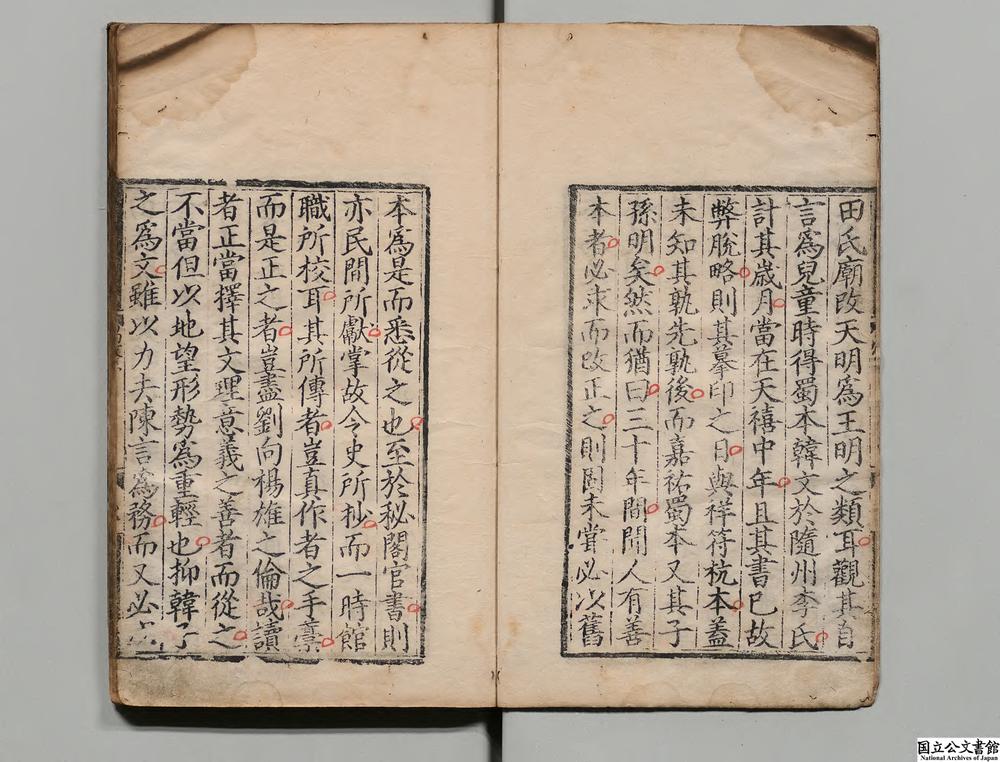 田氏廟改天明爲王明之類耳觀其自
言爲兒童時得蜀本韓文於隨州李氏
計其歲月當在天禧中年且其書已故
弊脫略則其摹印之日與祥符杭本蓋
未知其孰先孰後而嘉祐蜀本又其子
孫明矣然而猶曰三十年間聞人有善
本者必求而改正之則固未嘗必以舊
本爲是而悉從之也至於秘閣官書則
亦民間所獻掌故令史所抄而一時館
職所校耳其所傳者豈真作者之手藁
而是正之者豈盡劉向楊雄之倫哉讀
者正當擇其文理意義之善者而從之
不當但以地望形勢爲重輕也抑韓子
之爲文雖以力去陳言爲務而又必
国立公文書館
National Archives of Japan